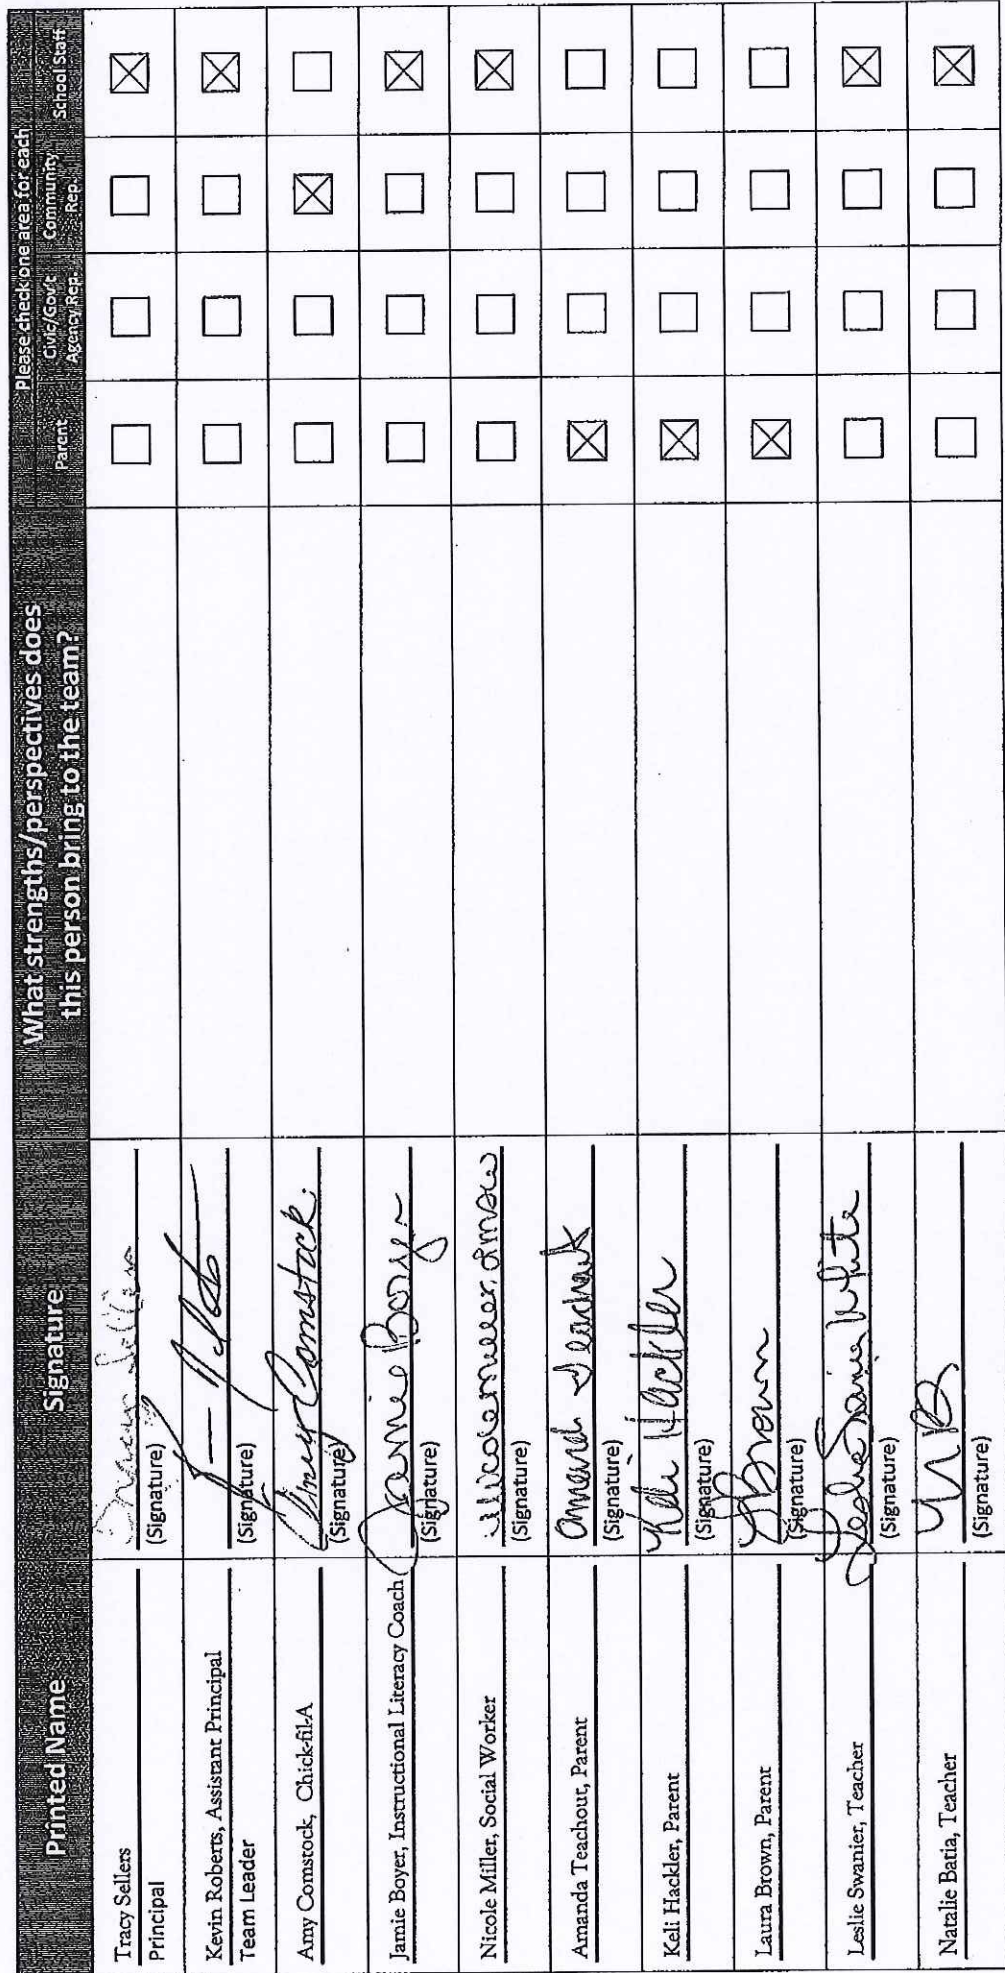 Printed Name
Signature
What strengths/perspectives does
this person bring to the team?
Please check one area for each
Parent
Civic/Gov't
Agency Rep.
Community
Rep.
School Staff
Tracy Sellers
Principal
Tracy Sellers
(Signature)
Kevin Roberts, Assistant Principal
Team Leader
(Signature)
Amy Comstock, Chick-fil-A
Amy Comstock.
(Signature)
Jamie Boyer, Instructional Literacy Coach
Jamie Boyer
(Signature)
Nicole Miller, Social Worker
(Signature)
Amanda Teachout, Parent
(Signature)
Keli Hackler, Parent
Keli Hackler
(Signature)
Laura Brown, Parent
LBrown
(Signature)
Leslie Swanier, Teacher
(Signature)
Natalie Batia, Teacher
(Signature)